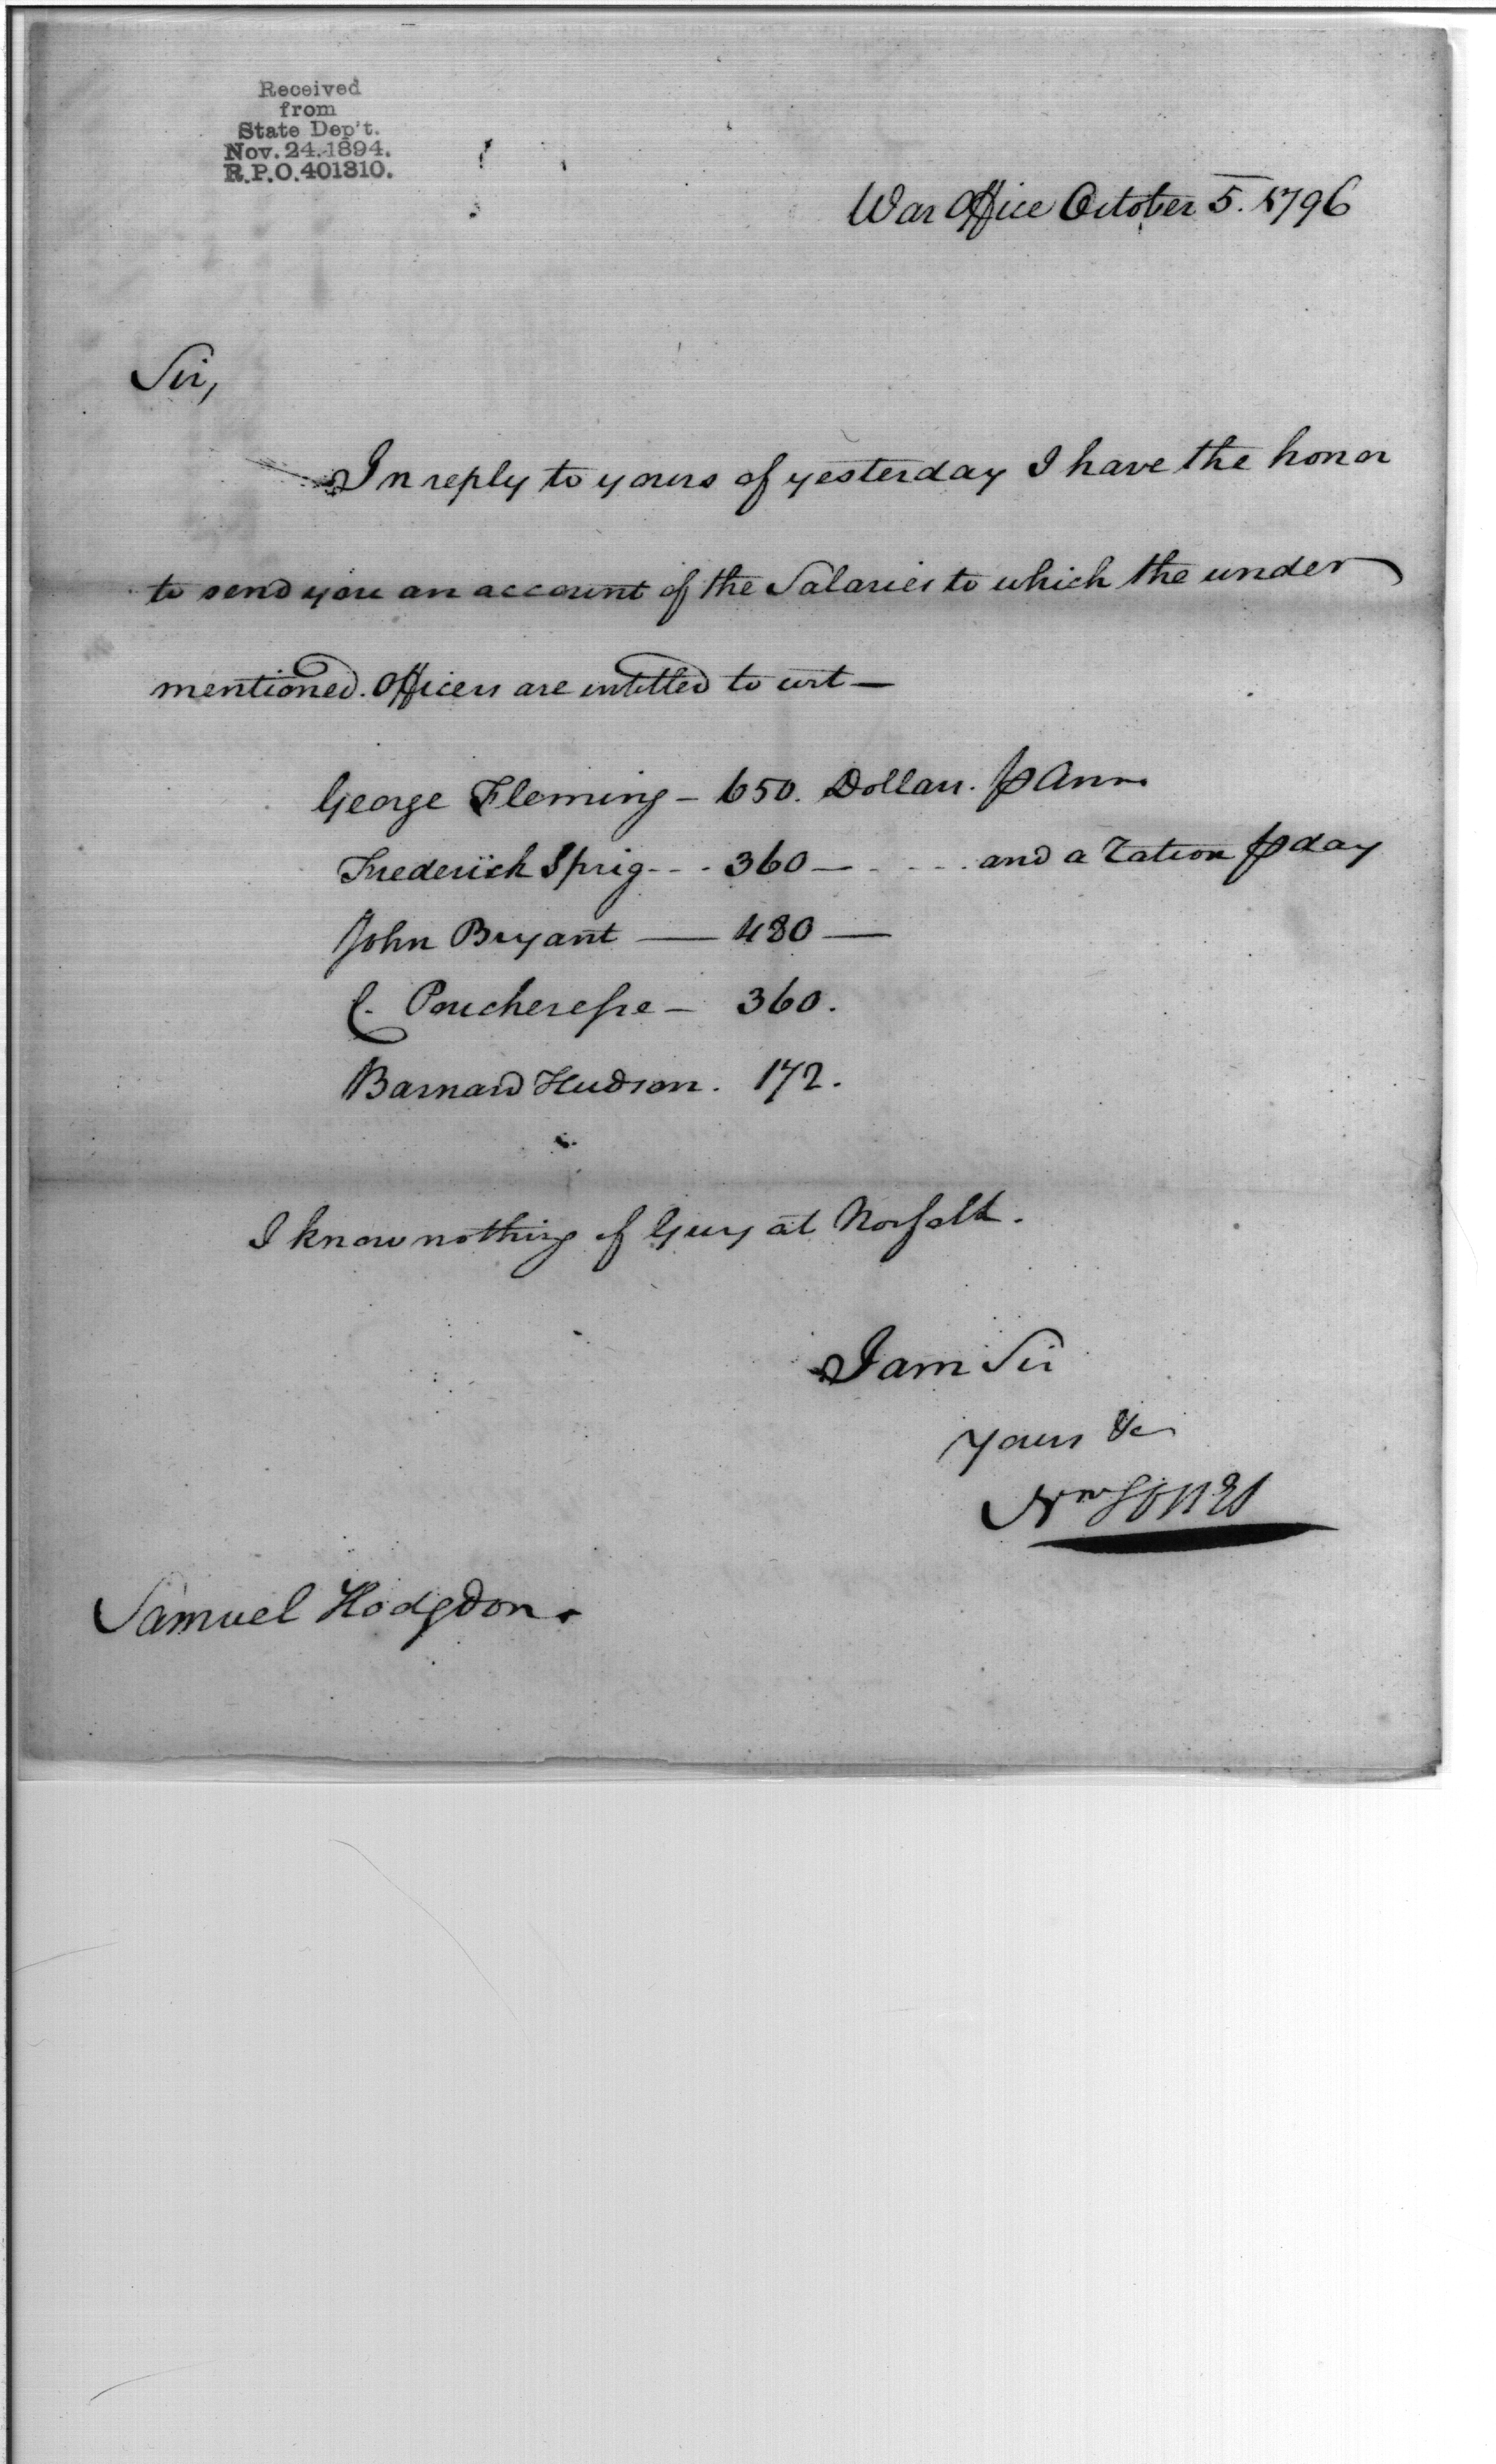 Received
from
State Dep't.
Nov. 24. 1894.
R.P.O. 401310.
War Office October 5. 1796
Sir,
In reply to yours of yesterday I have the honor
to send you an account of the Salaries to which the under
mentioned. Officers are entitled to wt —
George Fleming — 650. Dollars. ⅌ Ann.
Frederick Sprig - - - 360 — - - - - and a ration ⅌ day
John Bryant — 480 —
C. Poucheresse — 360.
Barnard Hudson. 172.
I know nothing of Guy at Norfolk.
I am Sir
Yours &c
Wm Jones
Samuel Hodgdon.